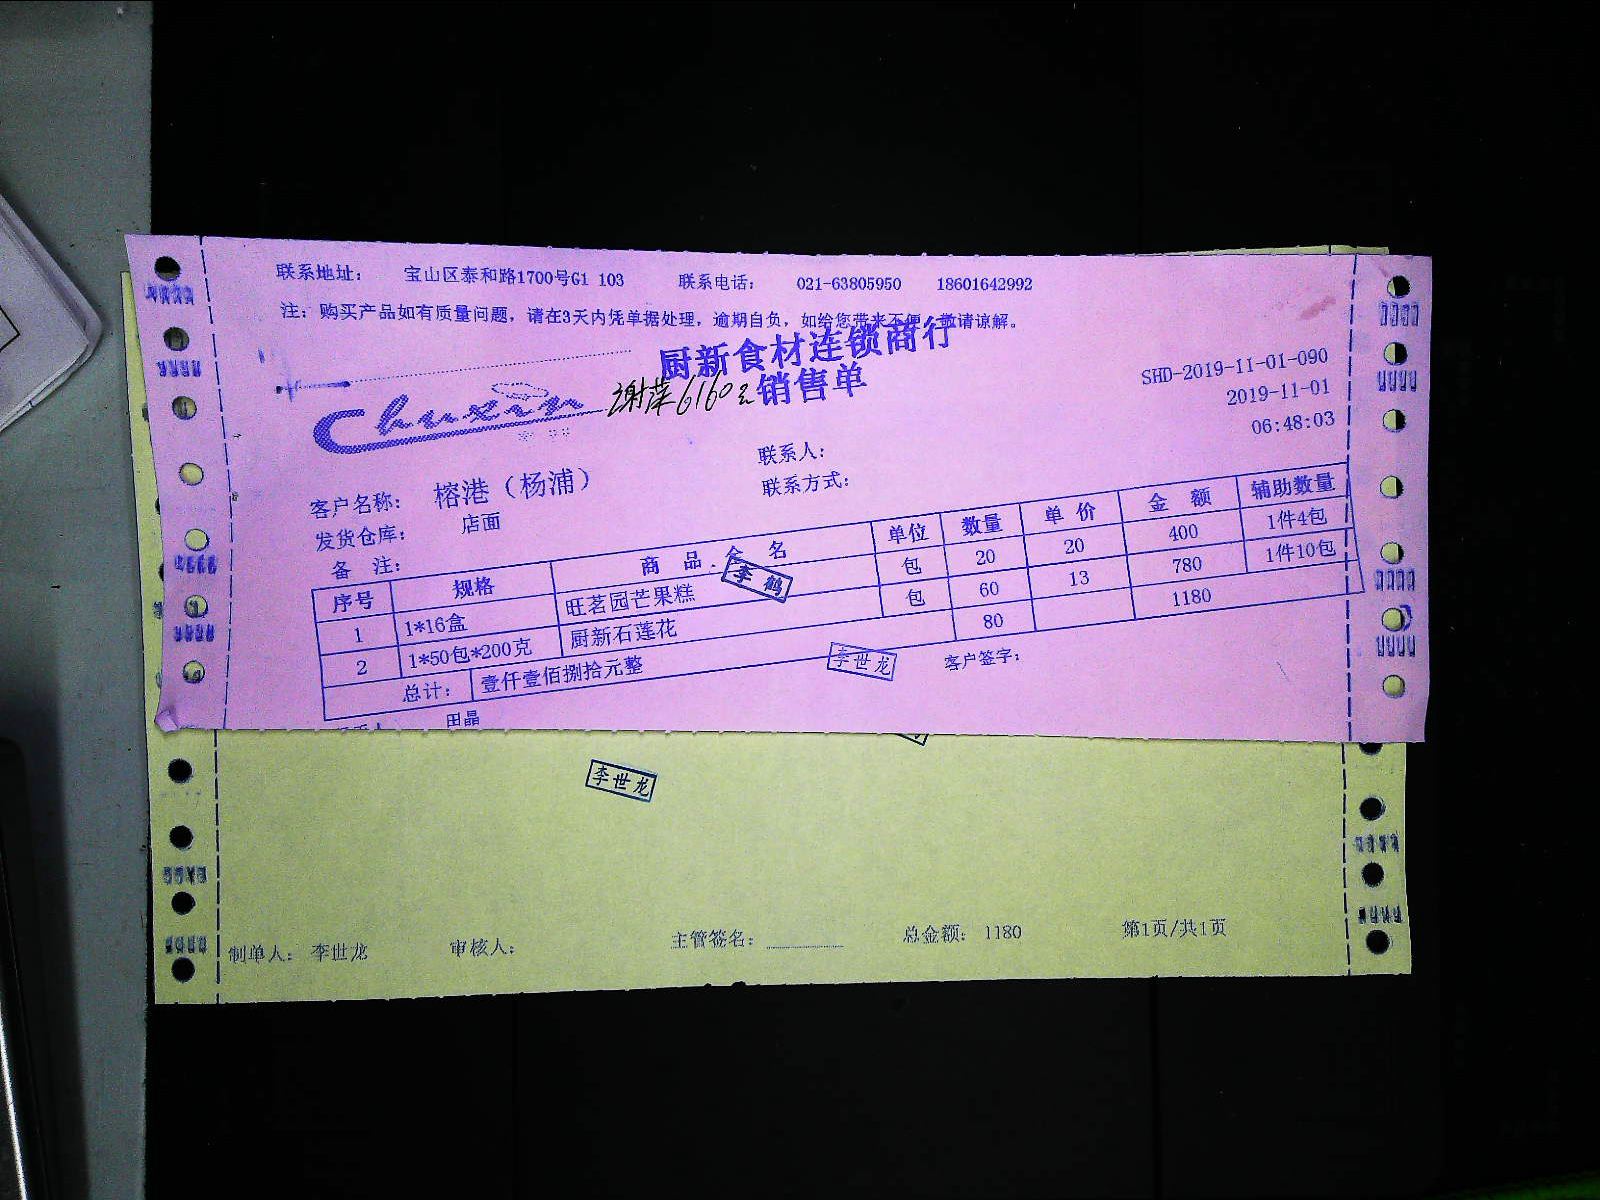 联系地址： 宝山区泰和路1700号G1 103 联系电话： 021-63805950 18601642992
注：购买产品如有质量问题，请在3天内凭单据处理，逾期自负，如给您带来不便，敬请谅解。
厨新食材连锁商行
Chuxin 谢萍6160元 销售单
SHD-2019-11-01-090
2019-11-01
06:48:03
客户名称： 榕港（杨浦） 联系人：
发货仓库： 店面 联系方式：
备 注：
序号 规格 商 品 全 名 单位 数量 单 价 金 额 辅助数量
1 1*16盒 旺茗园芒果糕 包 20 20 400 1件4包
2 1*50包*200克 厨新石莲花 包 60 13 780 1件10包
总计： 壹仟壹佰捌拾元整 80 1180
李 鹤
李世龙 客户签字：
田晶
李世龙
制单人： 李世龙 审核人： 主管签名： 总金额： 1180 第1页/共1页